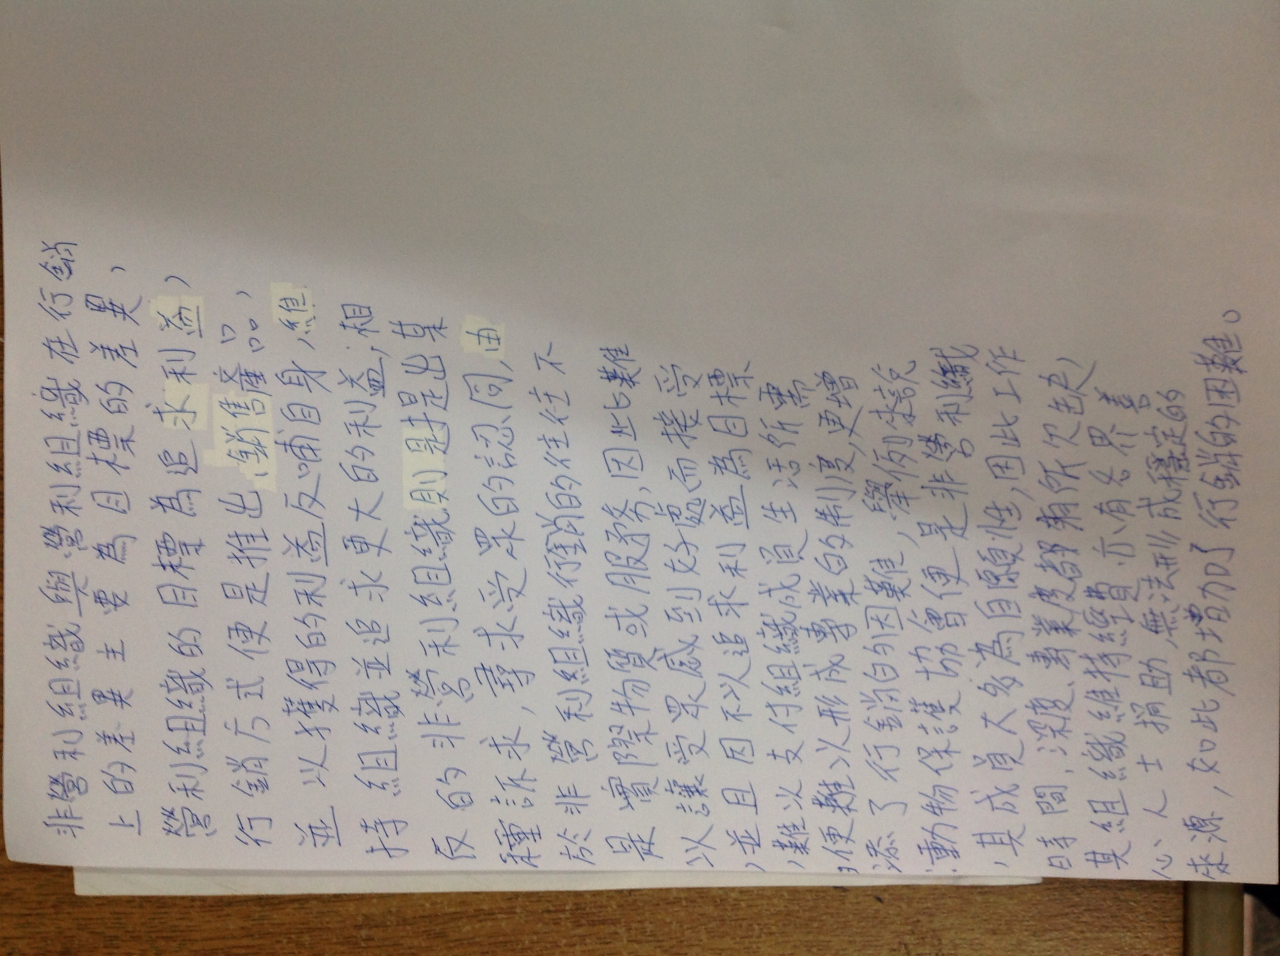 非營利組織與營利組織在行銷
上的差異主要為目標的差異,
營利組織的目標為追求利益,
行銷方式便是推出/銷售產品,
並以獲得的利益反哺自身,維
持組織並追求更大的利益,相
反的非營利組織則是提出某
種訴求,尋求受眾的認同,由
於非營利組織行銷的往往不
是實際物質或服務,因此難
以讓受眾感到好處而接受
,並且因不以追求利益為目標
,難以支付組織成員生活所需
,便難以形成專業的制度,更增
添了行銷的困難,舉例來說
,動物保護協會便是非營利組織
,其成員大多為自願性,因此工作
時間、深度、專業度都有所欠缺,
其組織維持經費亦有各界善
心人士捐助,無法形成穩定的
來源,如此都增加了行銷的困難。